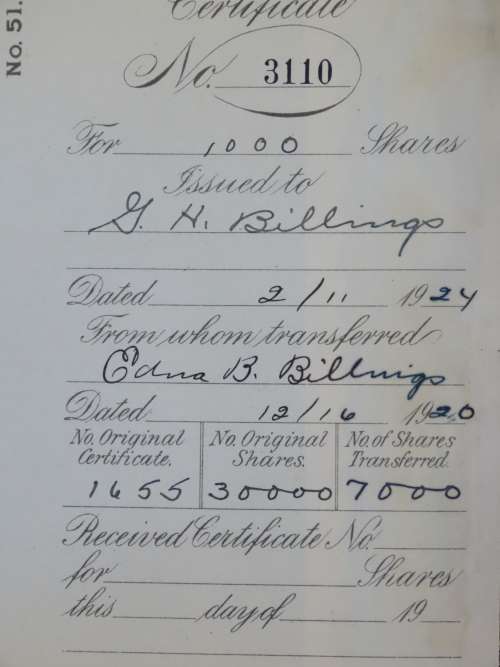 No. 51.
Certificate
No. 3110
For 1000 Shares
Issued to
G. H. Billings
Dated 2/11 1924
From whom transferred
Edna B. Billings
Dated 12/16 1920
No. Original Certificate. No. Original Shares. No. of Shares Transferred.
1655 30000 7000
Received Certificate No.
for Shares
this day of 19